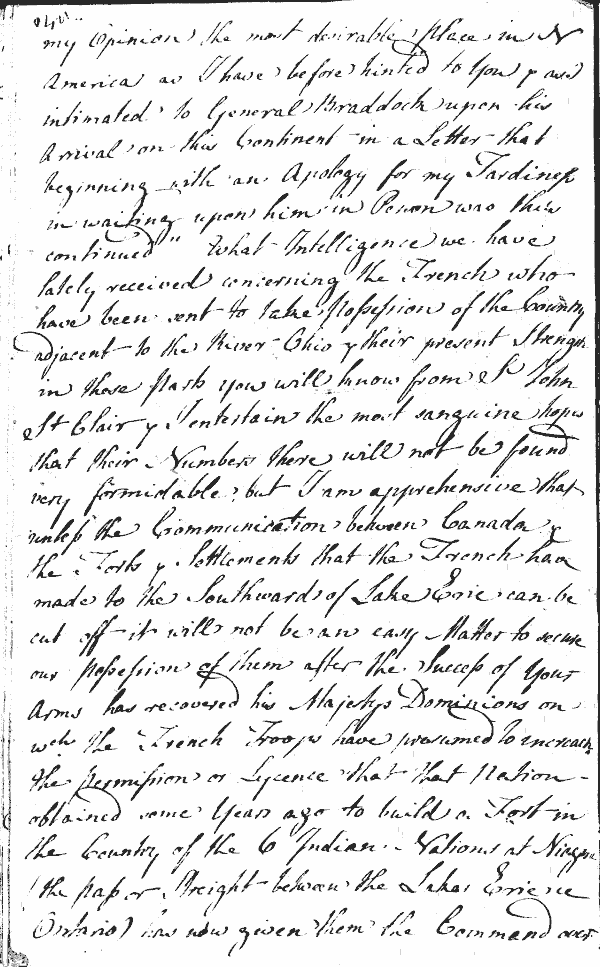 my Opinion the most desirable Place in N
America as I have before hinted to You & as
intimated to General Braddock upon his
Arrival on this Continent in a Letter that
beginning with an Apology for my Tardiness
in waiting upon him in Person was thus
continued "What Intelligence we have
lately received concerning the French who
have been sent to take Possession of the Country
adjacent to the River Ohio & their present Strength
in those parts you will know from Sr. John
St Clair & I entertain the most sanguine hopes
that their Numbers there will not be found
very formidable, but I am apprehensive that
unless the Communication between Canada &
the Forts & Settlements that the French have
made to the Southward of Lake Erie can be
cut off it will not be an easy Matter to secure
our possession of them after the Success of Your
Arms has recovered his Majestys Dominions on
wch. the French Troops have presumed to increach
the permission or Lycence that that Nation
obtained some Years ago to build a Fort in
the Country of the 6 Indian Nations at Niagra
(the pass or Streight between the Lakes Erie &
Ontario) has now given them the Command over